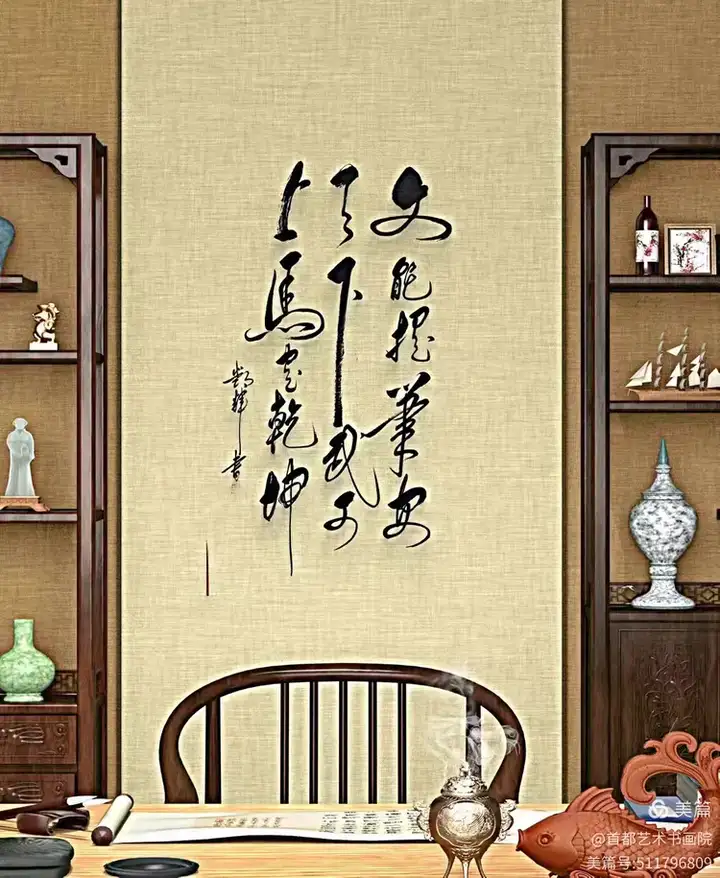 文能提筆安
天下武可
上馬定乾坤
輝書
美篇
@首都艺术书画院
美篇号:511796809